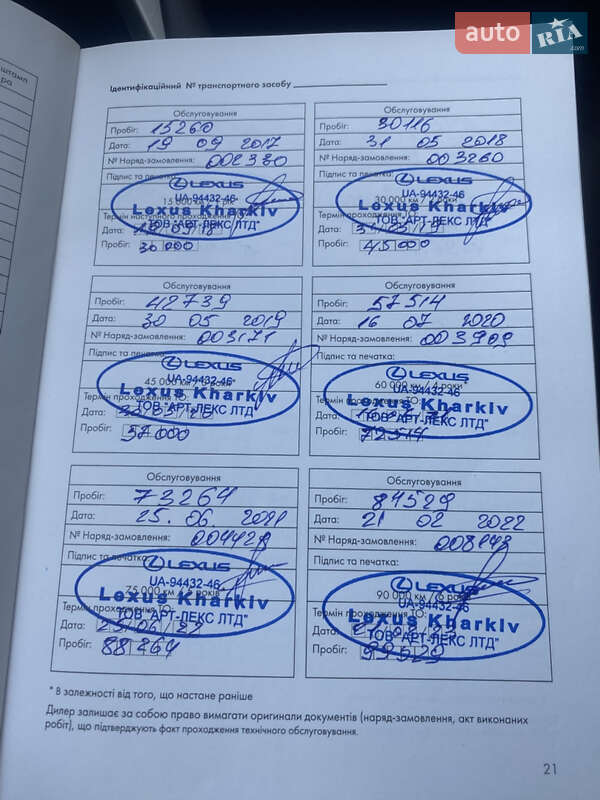 auto RIA .com
штамп
ра
Ідентифікаційний № транспортного засобу
Обслуговування
Пробіг: 15260
Дата: 19 09 2017
№ Наряд-замовлення: 002330
Підпис та печатка:
LEXUS
UA-94432-46
15 000 км / 1 рік
Lexus Kharkiv
ТОВ "АРТ-ЛЕКС ЛТД"
Термін наступного проходження ТО:
Дата:
Пробіг: 30000
Обслуговування
Пробіг: 30116
Дата: 31 05 2018
№ Наряд-замовлення: 003260
Підпис та печатка:
LEXUS
UA-94432-46
30 000 км / 2 роки
Lexus Kharkiv
ТОВ "АРТ-ЛЕКС ЛТД"
Термін проходження ТО:
Дата: 31 05 19
Пробіг: 45000
Обслуговування
Пробіг: 42739
Дата: 30 05 2019
№ Наряд-замовлення: 003171
Підпис та печатка:
LEXUS
UA-94432-46
45 000 км / 3 роки
Lexus Kharkiv
ТОВ "АРТ-ЛЕКС ЛТД"
Термін проходження ТО:
Дата: 30 05 20
Пробіг: 57000
Обслуговування
Пробіг: 57514
Дата: 16 07 2020
№ Наряд-замовлення: 003909
Підпис та печатка:
LEXUS
UA-94432-46
60 000 км / 4 роки
Lexus Kharkiv
ТОВ "АРТ-ЛЕКС ЛТД"
Термін проходження ТО:
Дата: 16 07 21
Пробіг: 72514
Обслуговування
Пробіг: 73264
Дата: 25. 06. 2021
№ Наряд-замовлення: 004428
Підпис та печатка:
LEXUS
UA-94432-46
75 000 км / 5 років
Lexus Kharkiv
ТОВ "АРТ-ЛЕКС ЛТД"
Термін проходження ТО:
Дата: 25 06 22
Пробіг: 88264
Обслуговування
Пробіг: 84529
Дата: 21 02 2022
№ Наряд-замовлення:
Підпис та печатка:
LEXUS
UA-94432-46
90 000 км / 6 років
Lexus Kharkiv
ТОВ "АРТ-ЛЕКС ЛТД"
Термін проходження ТО:
Дата: 21 02 23
Пробіг: 99529
* В залежності від того, що настане раніше
Дилер залишає за собою право вимагати оригінали документів (наряд-замовлення, акт виконаних
робіт), що підтверджують факт проходження технічного обслуговування.
21